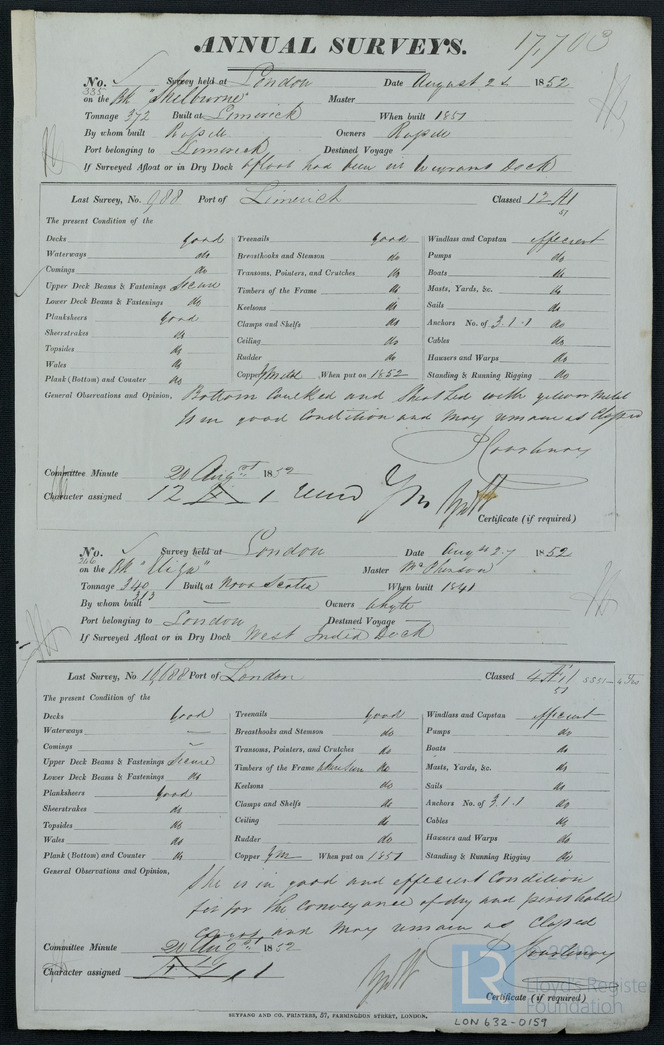 ANNUAL SURVEYS. 17,703
No. Survey held at London Date August 24 1852
335 on the Bk "Shelburne" Master
Tonnage 372 Built at Limerick When built 1851
By whom built Russell Owners Russell
Port belonging to Limerick Destined Voyage
If Surveyed Afloat or in Dry Dock Afloat had been in Dock
Last Survey, No. 988 Port of Limerick Classed 12 A1
51
The present Condition of the
Decks good Treenails good Windlass and Capstan efficient
Waterways do Breasthooks and Stemson do Pumps do
Comings do Transoms, Pointers, and Crutches do Boats do
Upper Deck Beams & Fastenings Secure Timbers of the Frame do Masts, Yards, &c. do
Lower Deck Beams & Fastenings do Keelsons do Sails do
Planksheers Good Clamps and Shelfs do Anchors No. of 3.1.1 do
Sheerstrakes do Ceiling do Cables do
Topsides do Rudder do Hawsers and Warps do
Wales do Copper Y Metal When put on 1852 Standing & Running Rigging do
Plank (Bottom) and Counter do
General Observations and Opinion, Bottom Caulked and Sheathed with yellow Metal
Is in good Condition and May remain as Classed
Committee Minute 20 Augst 1852
Character assigned 12 A 1
Certificate (if required)
No. Survey held at London Date Aug 27 1852
on the Bk "Eliza" Master McPherson
Tonnage 340 Built at Nova Scotia When built 1841
313
By whom built — Owners Whyte
Port belonging to London Destined Voyage —
If Surveyed Afloat or in Dry Dock West India Dock
Last Survey, No 16,688 Port of London Classed 4 Æ 1
51
The present Condition of the
Decks Good Treenails Good Windlass and Capstan efficient
Waterways — Breasthooks and Stemson do Pumps do
Comings — Transoms, Pointers, and Crutches do Boats do
Upper Deck Beams & Fastenings Secure Timbers of the Frame when seen do Masts, Yards, &c. do
Lower Deck Beams & Fastenings do Keelsons do Sails do
Planksheers Good Clamps and Shelfs do Anchors No. of 3.1.1 do
Sheerstrakes do Ceiling do Cables do
Topsides do Rudder do Hawsers and Warps do
Wales do Copper Y M When put on 1851 Standing & Running Rigging do
Plank (Bottom) and Counter do
General Observations and Opinion,
She is in good and efficient Condition
fit for the Conveyance of dry and perishable
Cargoes and May remain as Classed
Committee Minute 20 Augst 1852
Character assigned Æ 1
Certificate (if required)
SEYFANG AND CO. PRINTERS, 57, FARRINGDON STREET, LONDON.
LON 632-0159
LR
2019
Lloyd's Register
Foundation